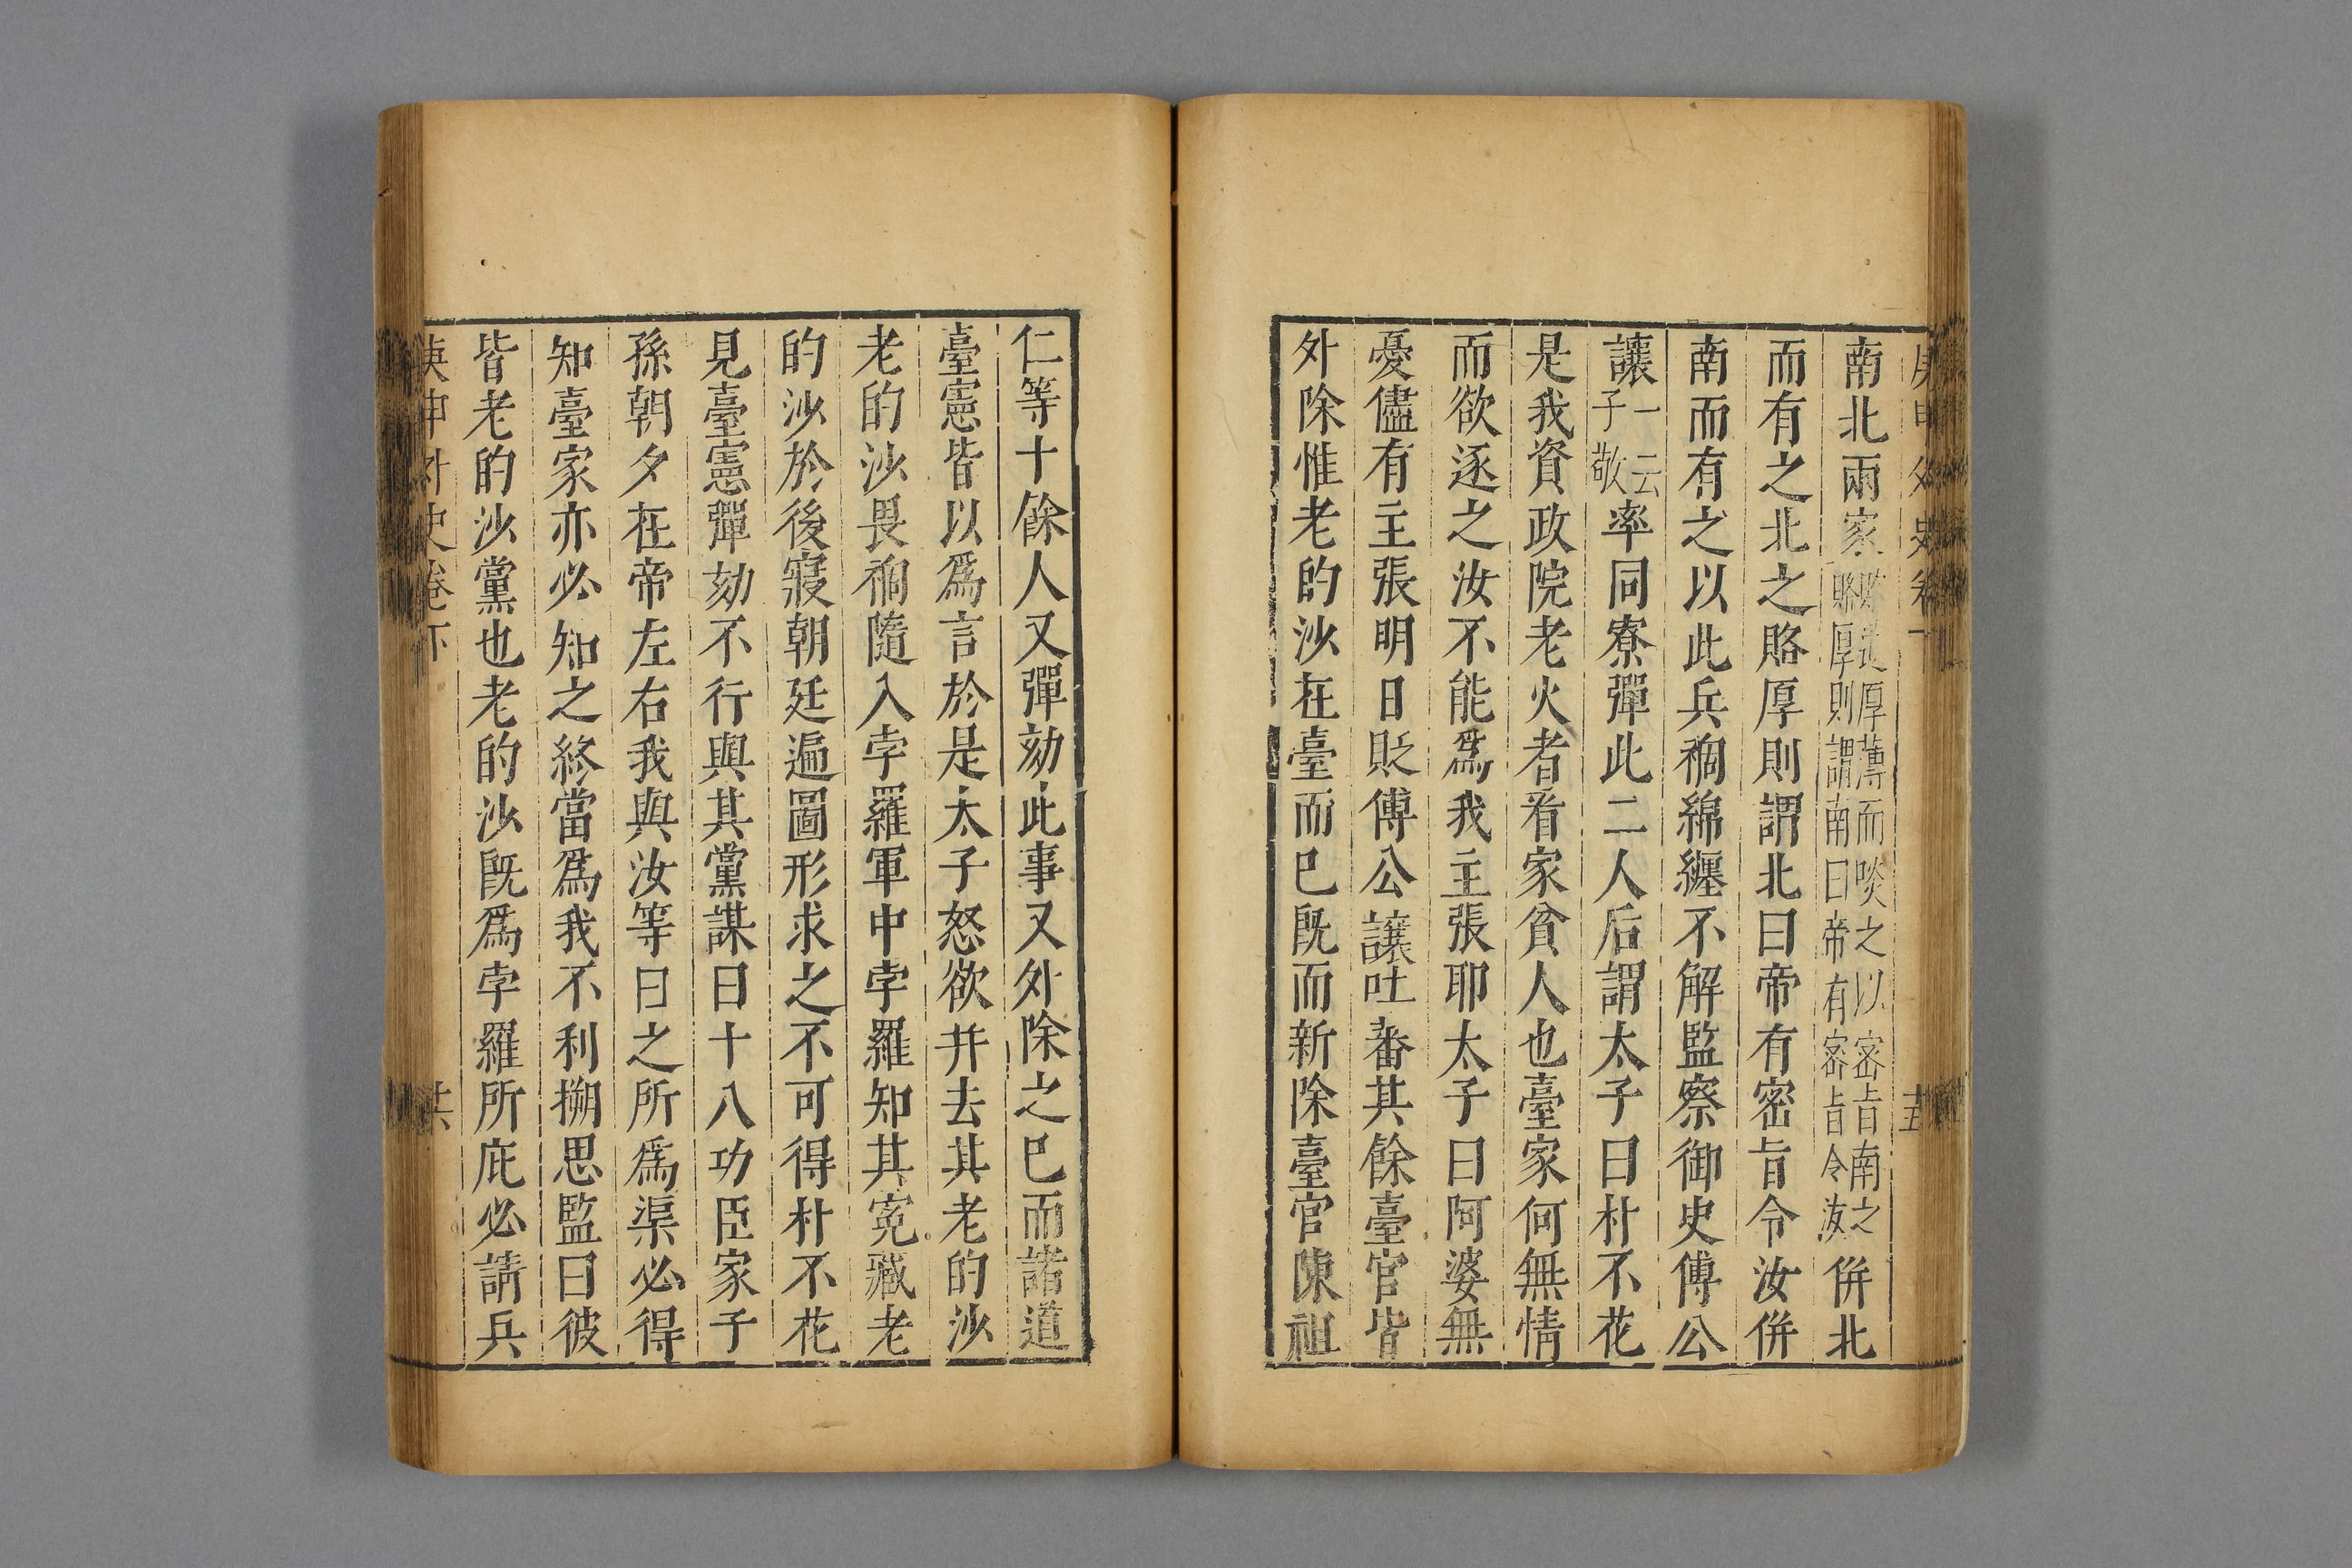 庚申外史卷下
十五
南北兩家賂遺厚薄而啖之以密旨南之賂厚則謂南曰帝有密旨令汝併北
而有之北之賂厚則謂北曰帝有密旨令汝併
南而有之以此兵禍綿纏不解監察御史傅公
讓一云子敬率同寮彈此二人后謂太子曰朴不花
是我資政院老火者看家貧人也臺家何無情
而欲逐之汝不能爲我主張耶太子曰阿婆無
憂儘有主張明日貶傅公讓吐蕃其餘臺官皆
外除惟老的沙在臺而已旣而新除臺官陳祖
仁等十餘人又彈劾此事又外除之已而諸道
臺憲皆以爲言於是太子怒欲幷去其老的沙
老的沙畏禍隨入孛羅軍中孛羅知其寃藏老
的沙於後寢朝廷遍圖形求之不可得朴不花
見臺憲彈劾不行與其黨謀曰十八功臣家子
孫朝夕在帝左右我與汝等曰之所爲渠必得
知臺家亦必知之終當爲我不利搠思監曰彼
皆老的沙黨也老的沙旣爲孛羅所庇必請兵
庚申外史卷下
十六